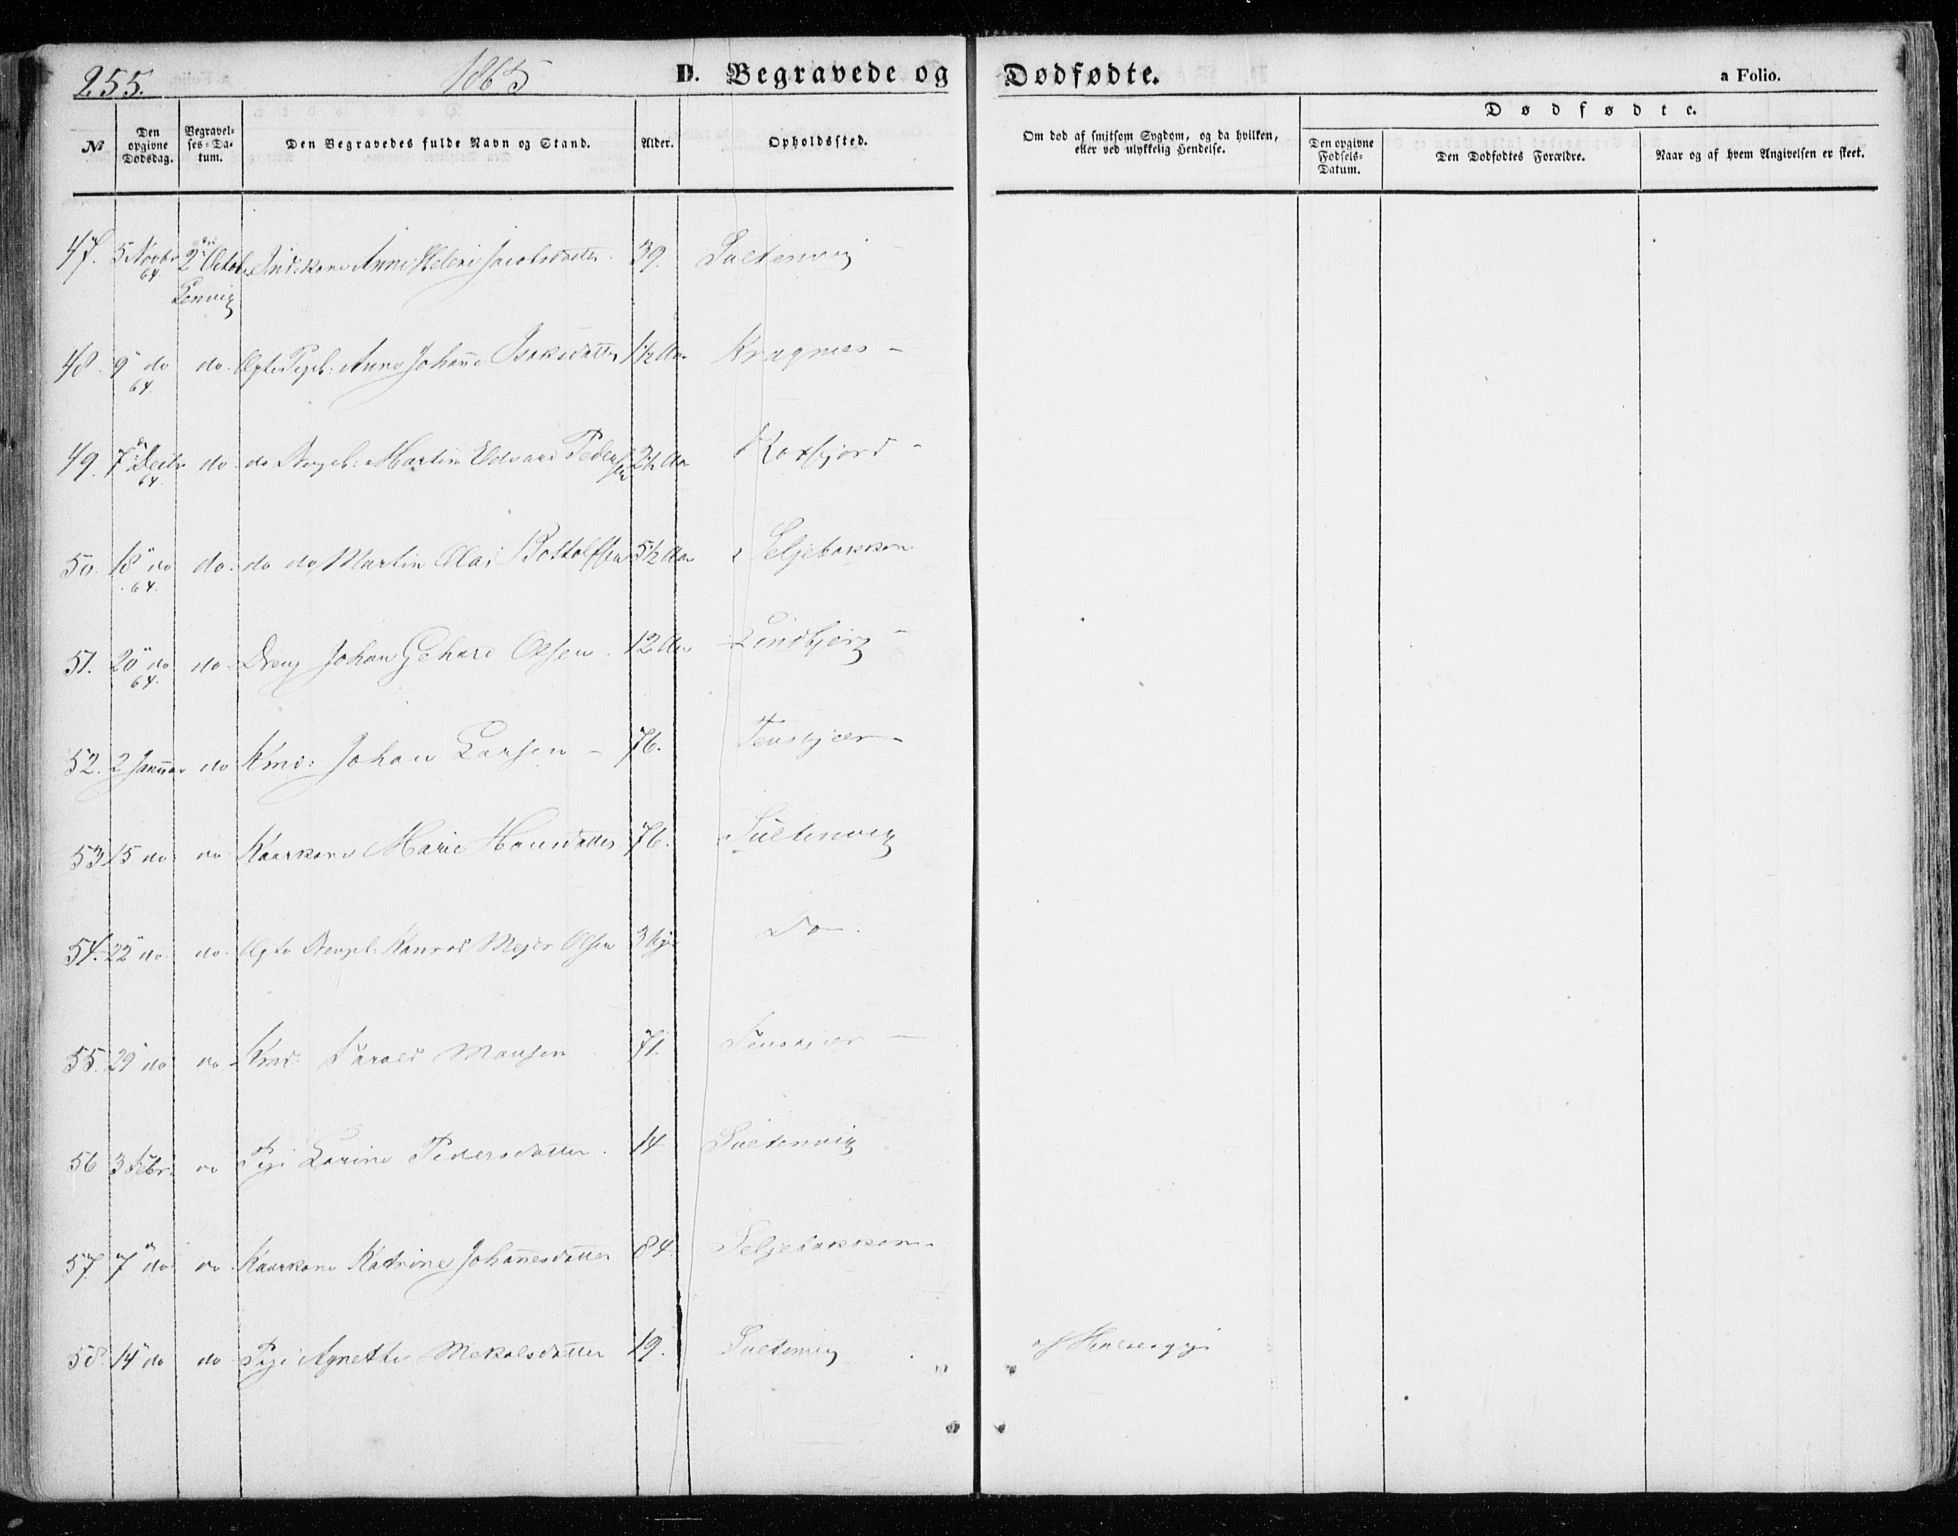 255. 1865 D. Begravede og Dødfødte. a Folio.
No Den opgivne Dødsdag. Begravelses-Datum. Den Begravedes fulde Navn og Stand. Alder. Opholdssted. Om død af smitsom Sygdom, og da hvilken, eller ved ulykkelig Hendelse. Dødfødte. Den opgivne Fødsels-Datum. Den Dødfødtes Forældre. Naar og af hvem Angivelsen er skeet.
47. 5 Novbr 64 2den Octob Lenvig Inds kone Anne Helene Jacobsdatter. 39.
48. 9" do 64 do. Ægte Pigeb: Anne Johanne Isaksdatter 1½ Aar Kragnes -
49. 7de Decbr 64 do do Drengeb: Martin Edvard Pedersen 2½ Aar
50. 18" do 64. do. do do Martin Olai 5½ Aar Seljebakken
51. 20" do 64. do Dreng Johan Gehard Olsen. 12 Aar Lindbjerg -
52. 2 Januar do Kmd: Johan Larsen - 76.
53 15 do do Kaarkone Marie Hansdatter 76. Sultenvig
54. 22" do do. Ægte Drengeb. Konrad Mejer Olsen 3 Do.
55. 29" do do Kmd: Hansen 71.
56 3 Febr: do Pige Larine Pedersdatter. 14 Sultenvig
57. 7de do do Kaarkone Katrine Johannesdatter 84. Seljebakken
58. 14" do do Pige Agnette Mekalsdatter 19. Sultenvig af Halsesyge